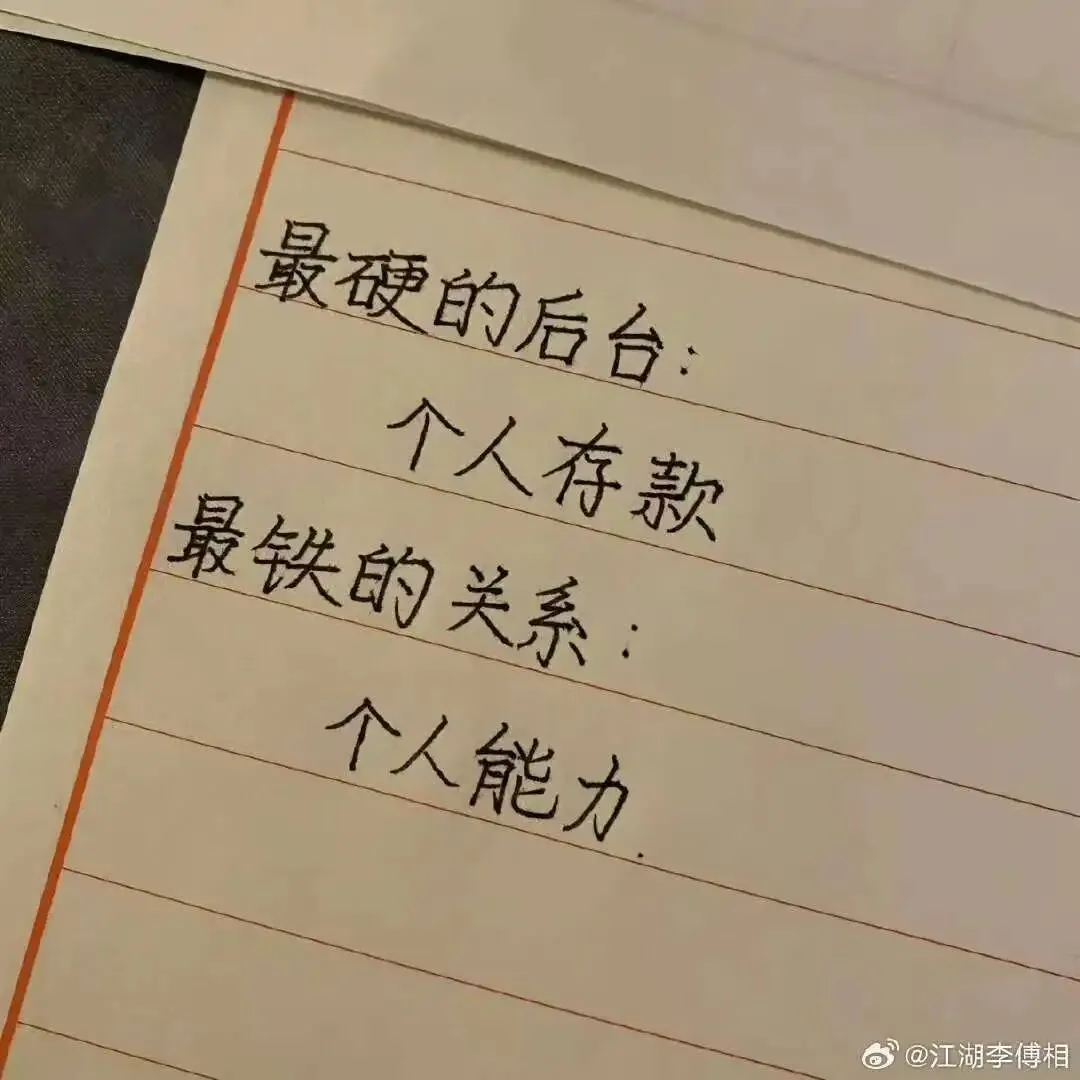 最硬的后台:
个人存款
最铁的关系:
个人能力.
@江湖李傅相